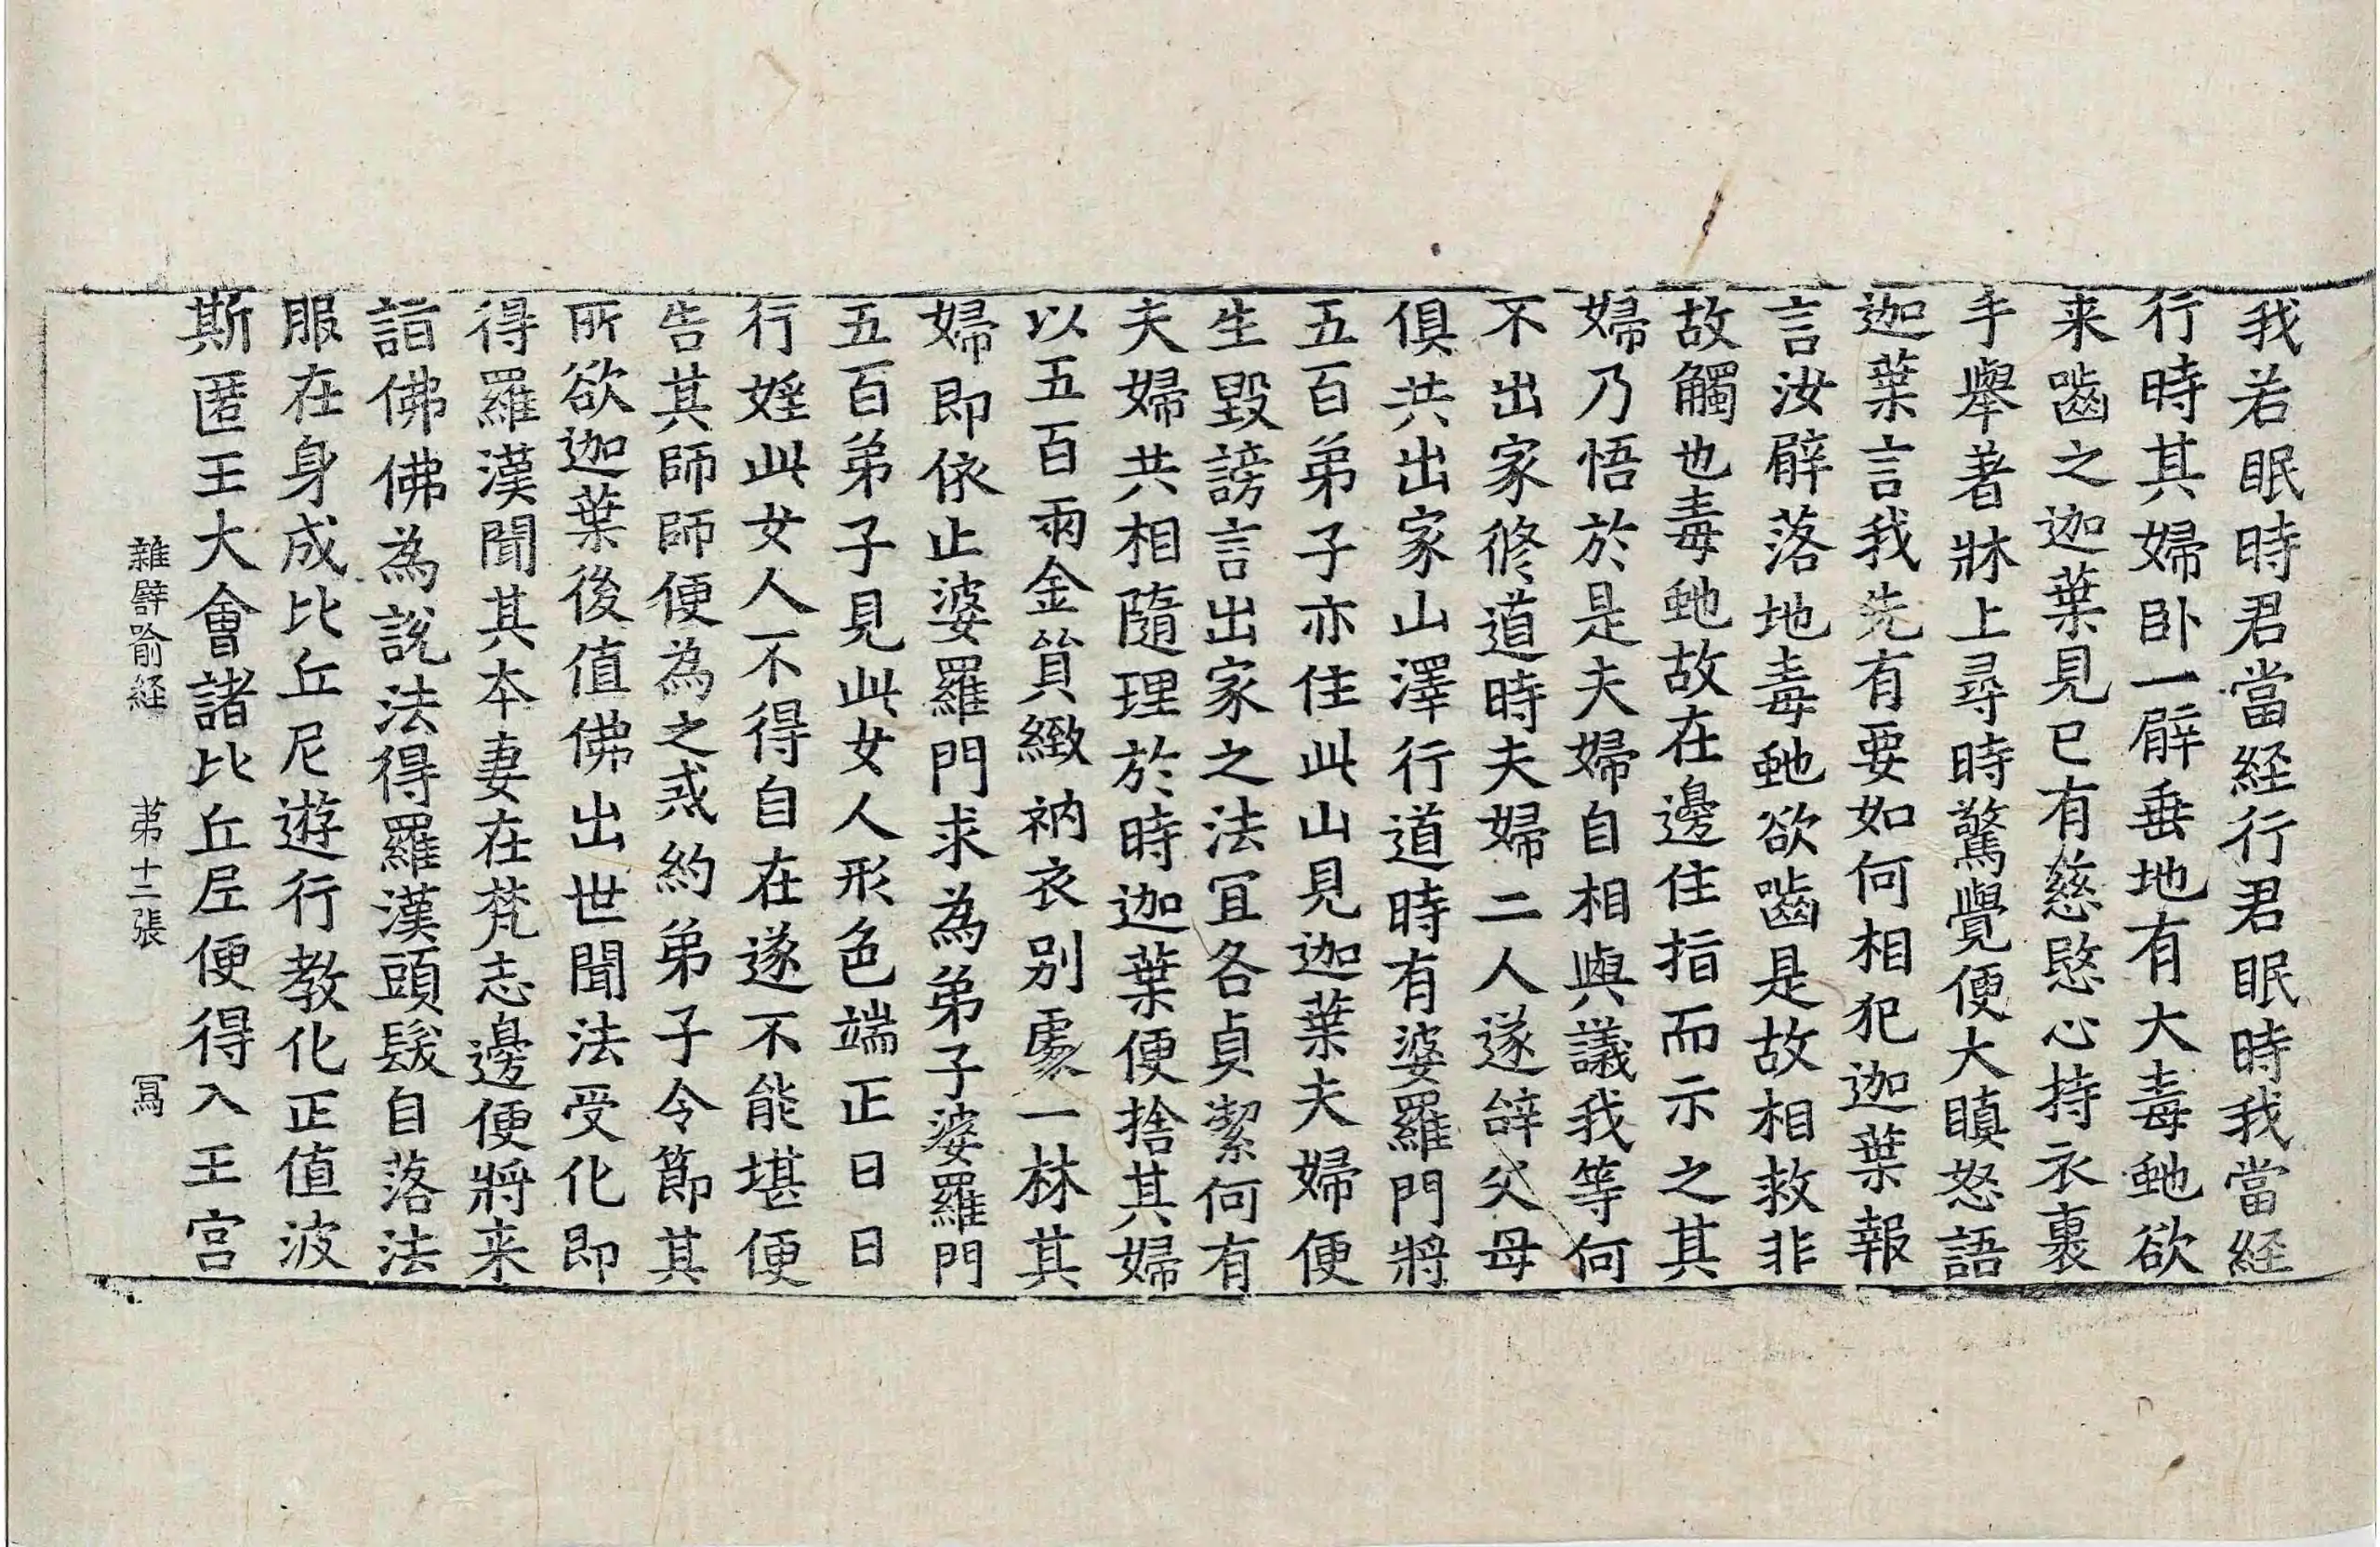 我若眠時君當経行君眠時我當経
行時其婦卧一臂垂地有大毒虵欲
来嚙之迦葉見已有慈愍心持衣裹
手舉著牀上尋時驚覺便大瞋怒語
迦葉言我先有要如何相犯迦葉報
言汝臂落地毒虵欲嚙是故相救非
故觸也毒虵故在邊住指而示之其
婦乃悟於是夫婦自相與議我等何
不出家修道時夫婦二人遂辝父母
俱共出家山澤行道時有婆羅門將
五百弟子亦住此山見迦葉夫婦便
生毀謗言出家之法冝各貞潔何有
夫婦共相隨理於時迦葉便捨其婦
以五百兩金貿緻衲衣别處一林其
婦即依止婆羅門求為弟子婆羅門
五百弟子見此女人形色端正日日
行婬此女人不得自在遂不能堪便
告其師師便為之戒約弟子令節其
所欲迦葉後值佛出世聞法受化即
得羅漢聞其本妻在梵志邊便將来
詣佛佛為說法得羅漢頭髮自落法
服在身成比丘尼遊行教化正值波
斯匿王大會諸比丘尼便得入王宫
雜譬喻経 苐十二張 冩